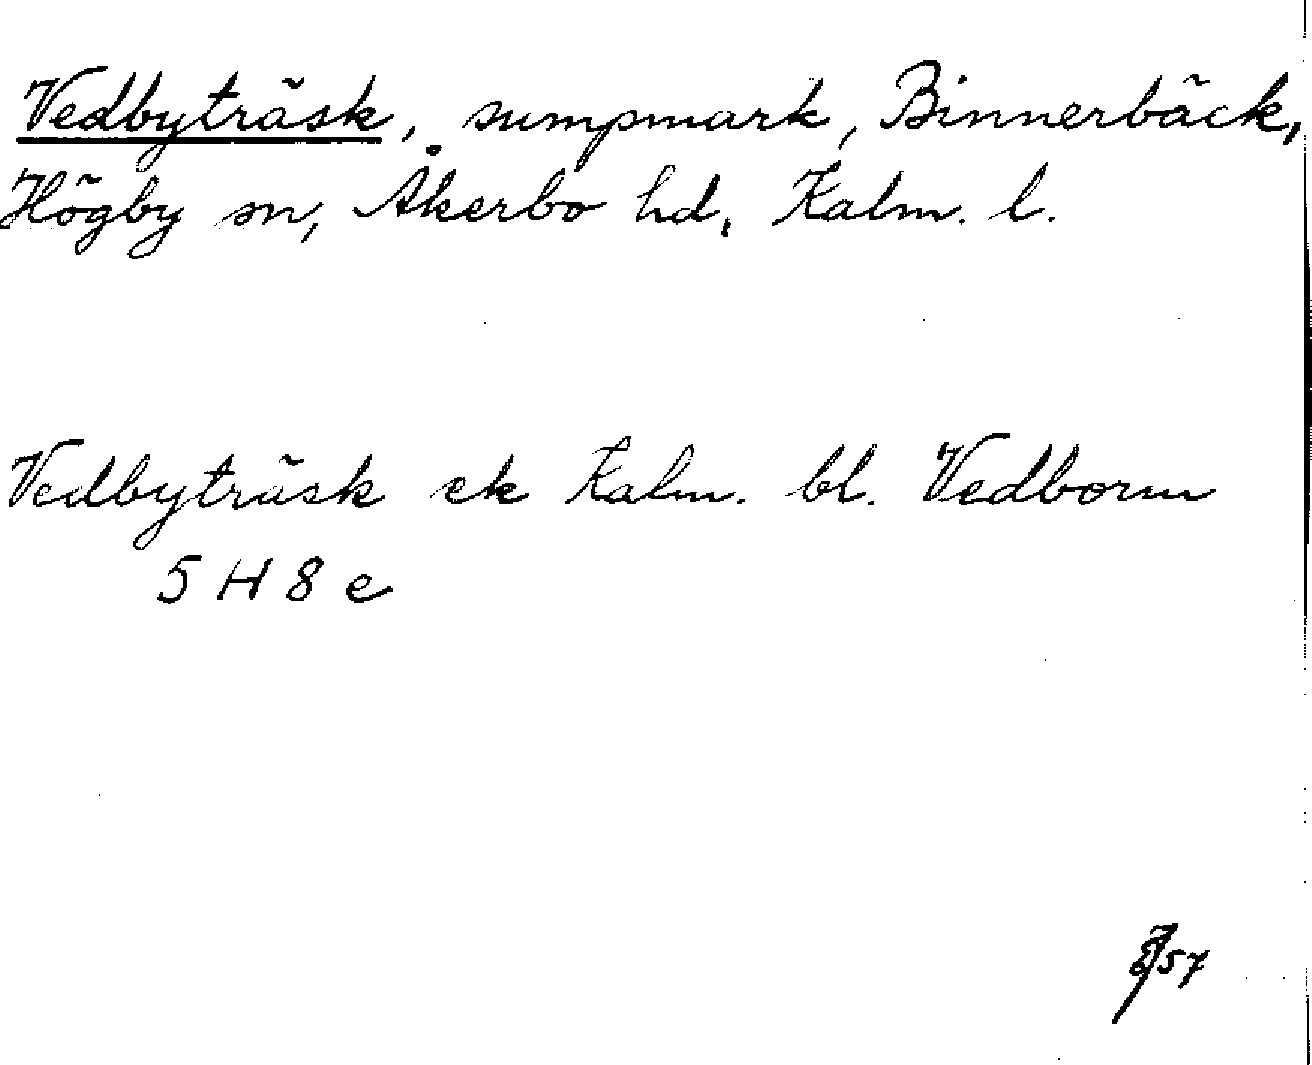 Vedbyträsk, sumpmark, Binnerbäck,
Högby sn, Åkerbo hd, Kalm. l.
Vedbyträsk ek Kalm. bl. Vedborm
5 H 8 e
57